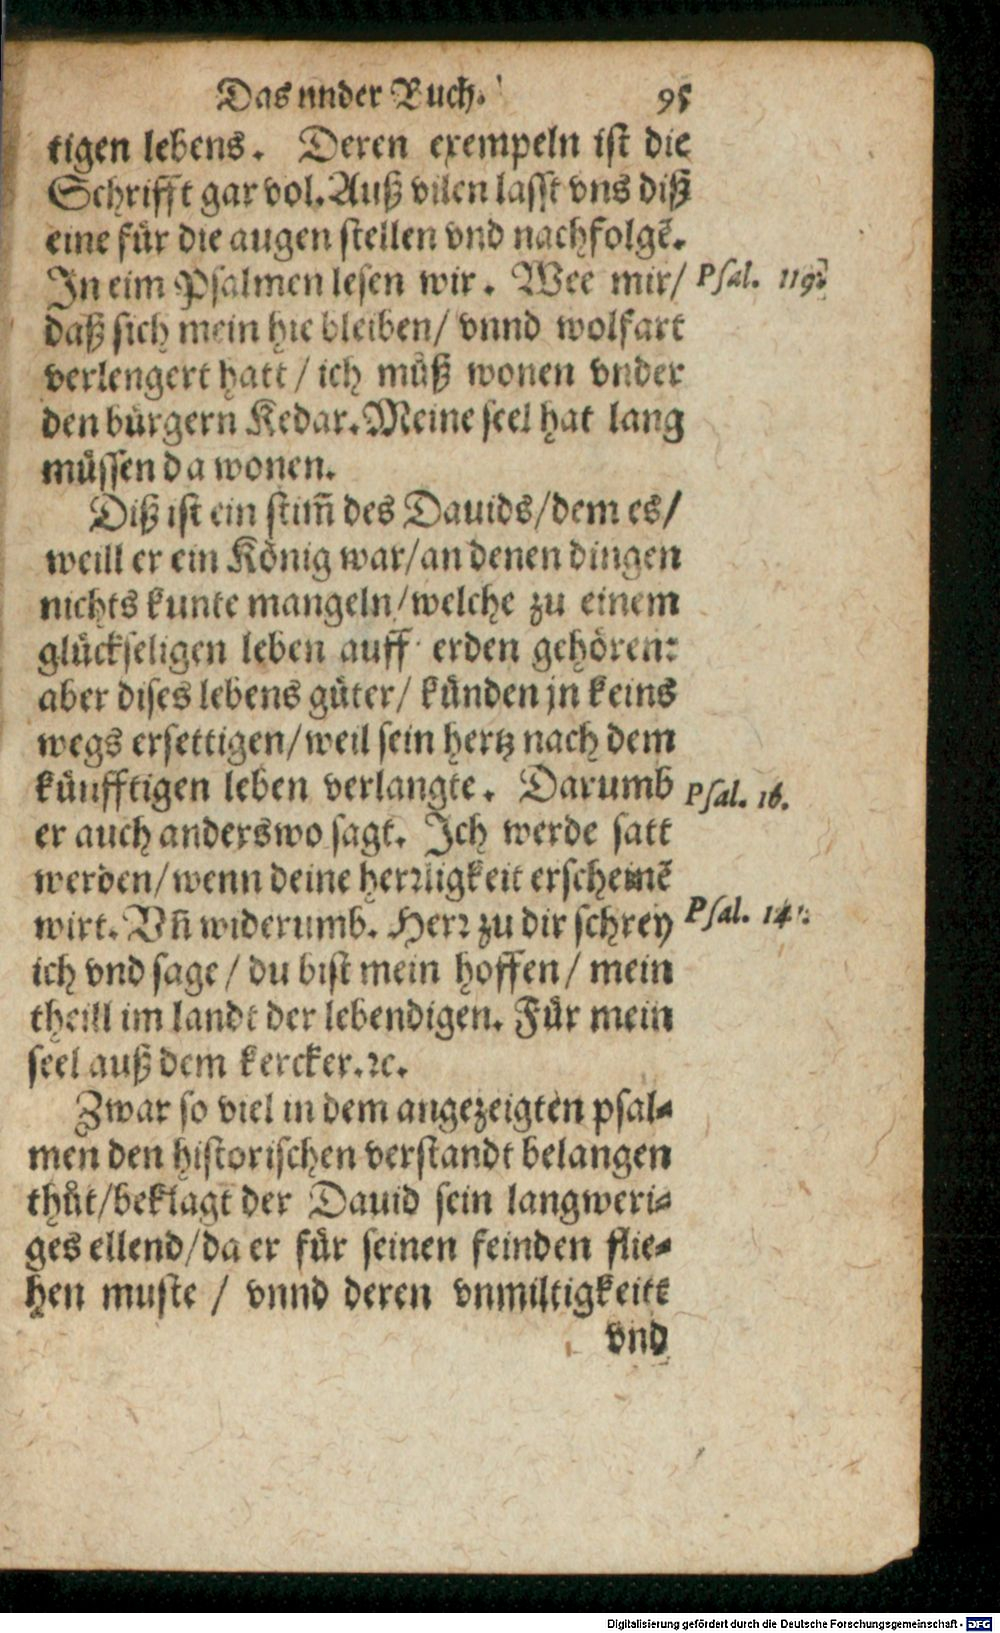 Das ander Buch. 95
tigen lebens. Deren exempeln ist die
Schrifft gar vol. Auß vilen lasst vns diß
eine für die augen stellen vnd nachfolgẽ.
In eim Psalmen lesen wir. Wee mir/ Psal. 119.
daß sich mein hie bleiben/ vnnd wolfart
verlengert hatt / ich muͦß wonen vnder
den bürgern Kedar. Meine seel hat lang
müssen da wonen.
Diß ist ein stim̃ des Dauids/dem es/
weill er ein Koͤnig war/an denen dingen
nichts kunte mangeln/welche zu einem
glückseligen leben auff erden gehoͤren:
aber dises lebens guͤter/ künden jn keins
wegs ersettigen/weil sein hertz nach dem
künfftigen leben verlangte. Darumb Psal. 16.
er auch anderswo sagt. Ich werde satt
werden/wenn deine herꝛligkeit erscheinẽ
wirt. Vñ widerumb. Herꝛ zu dir schrey Psal. 141.
ich vnd sage / du bist mein hoffen / mein
theill im landt der lebendigen. Für mein
seel auß dem kercker.ꝛc.
Zwar so viel in dem angezeigten psal⸗
men den historischen verstandt belangen
thuͦt/beklagt der Dauid sein langweri⸗
ges ellend/da er für seinen feinden flie⸗
hen muste / vnnd deren vnmiltigkeitt
vnd
Digitalisierung gefördert durch die Deutsche Forschungsgemeinschaft - DFG